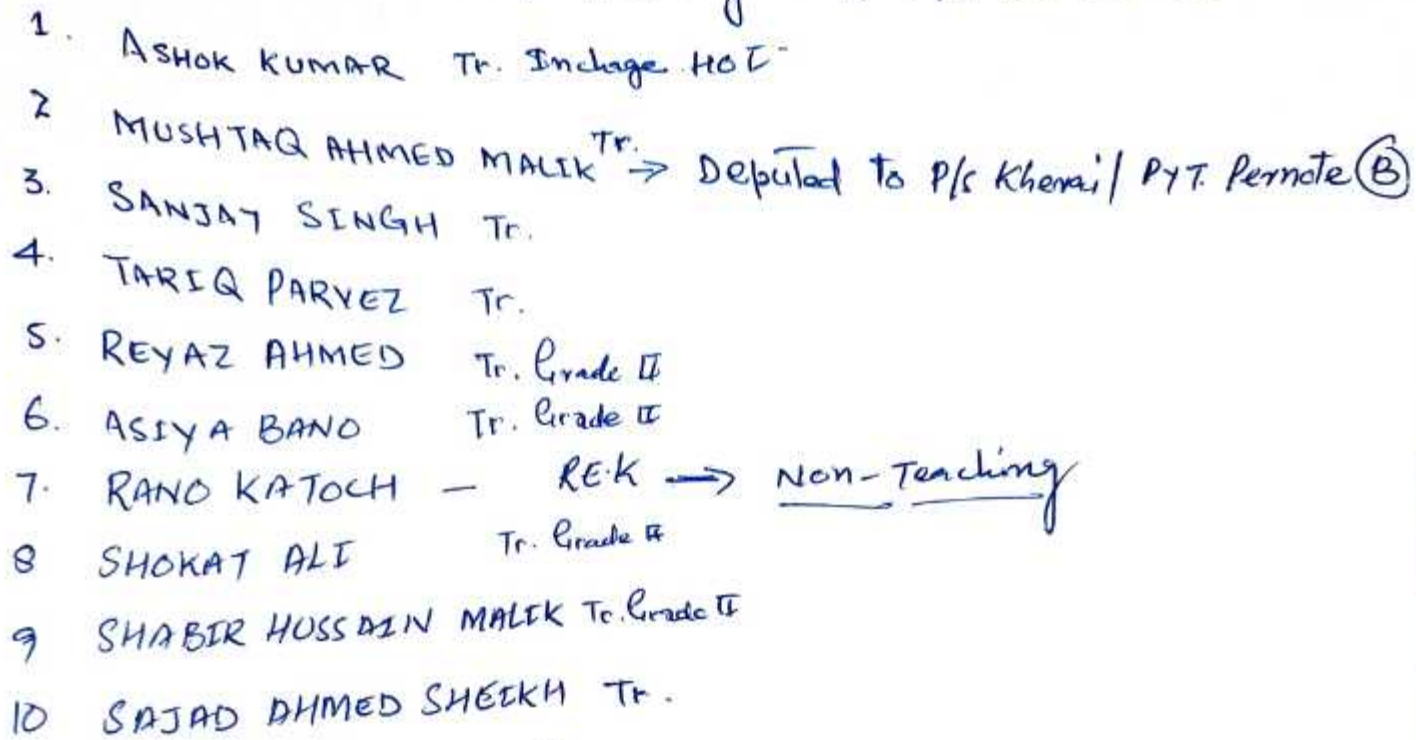 1. ASHOK KUMAR Tr. Inchage HOI
2 MUSHTAQ AHMED MALIK Tr. → Deputed to P/S Kherai/ PYT. Pernote (B)
3. SANJAY SINGH Tr.
4. TARIQ PARVEZ Tr.
5. REYAZ AHMED Tr. Grade II
6. ASIYA BANO Tr. Grade II
7. RANO KATOCH - RE.K → Non-Teaching
8 SHOKAT ALI Tr. Grade II
9 SHABIR HUSSAIN MALIK Tr. Grade II
10 SAJAD AHMED SHEIKH Tr.